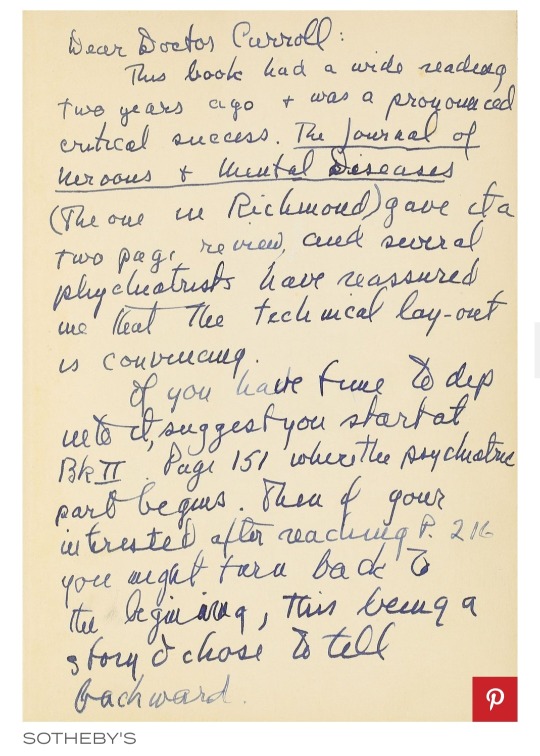 Dear Doctor Carroll:
This book had a wide reading
two years ago + was a pronounced
critical success. The Journal of
Nervous + Mental Diseases
(The one in Richmond) gave it a
two page review, and several
phychiatrists have reassured
me that the technical lay-out
is convincing.
If you have time to dip
into it, suggest you start at
Bk II. Page 151 where the psychiatric
part begins. Then if your
interested after reaching P. 216
you might turn back to
the begining, this being a
story I chose to tell
backward.
SOTHEBY'S